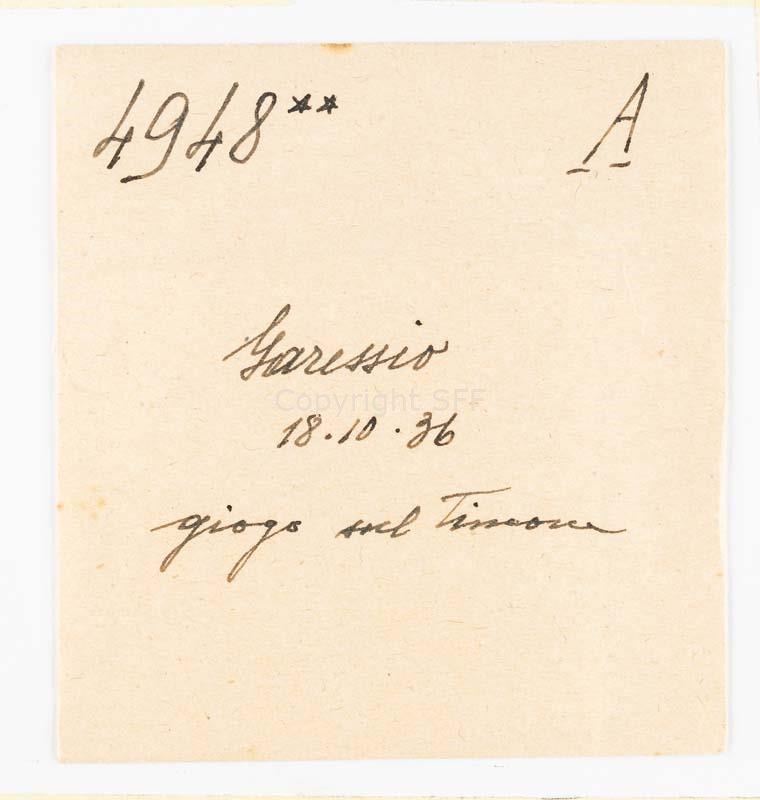 4948** A
Garessio
Copyright SFF
18.10.36
giogo sul Timone